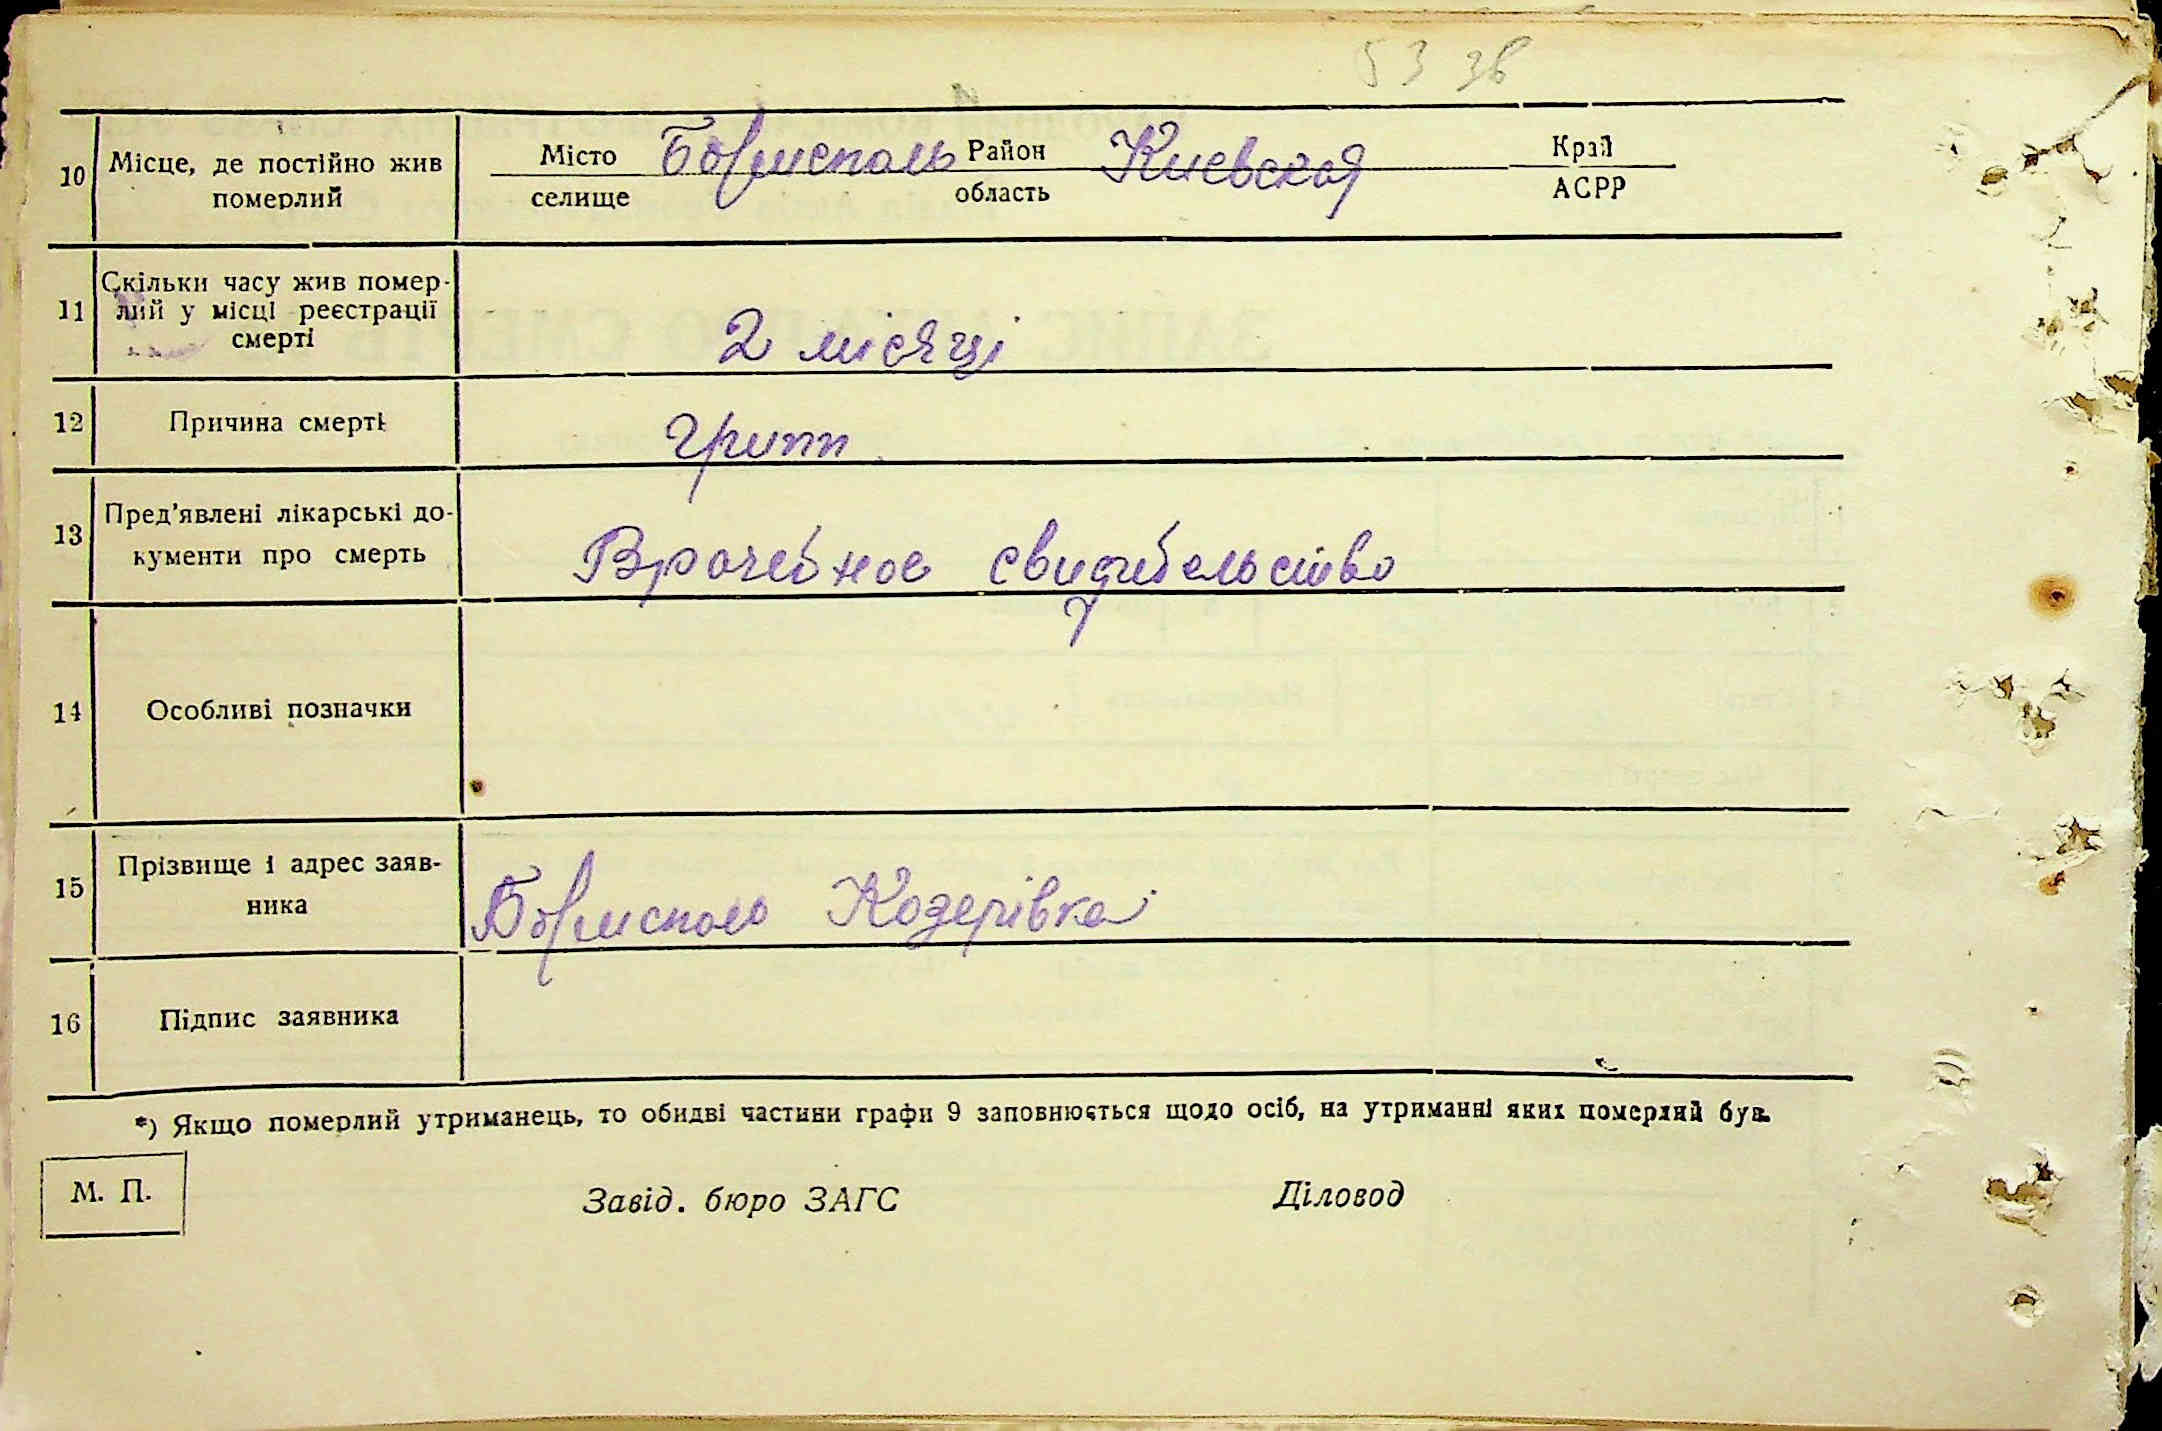 53 зв
10 Місце, де постійно жив померлий Місто селище Борисполь Район область Киевская Край АСРР
11 Скільки часу жив помер-
лий у місці реєстрації
смерті
2 місяці
12 Причина смерті грипп
13 Пред'явлені лікарські до-
кументи про смерть
Врачебное свидительство
14 Особливі позначки
15 Прізвище і адрес заяв-
ника
Борисполь
16 Підпис заявника
*) Якщо померлий утриманець, то обидві частини графи 9 заповнюється щодо осіб, на утриманні яких померлий був.
М. П. Завід. бюро ЗАГС Діловод